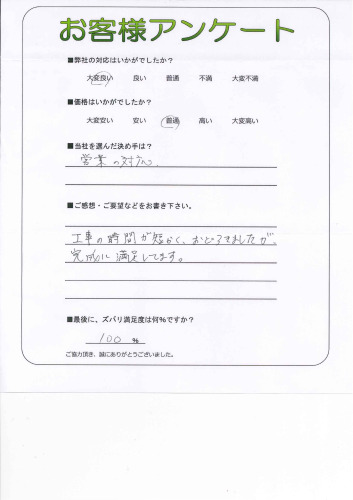 お客様アンケート
■弊社の対応はいかがでしたか？
大変良い 良い 普通 不満 大変不満
■価格はいかがでしたか？
大変安い 安い 普通 高い 大変高い
■当社を選んだ決め手は？
営業の対応。
■ご感想・ご要望などをお書き下さい。
工事の時間が短かく、おどろきましたが、
完成に満足してます。
■最後に、ズバリ満足度は何%ですか？
100 %
ご協力頂き、誠にありがとうございました。